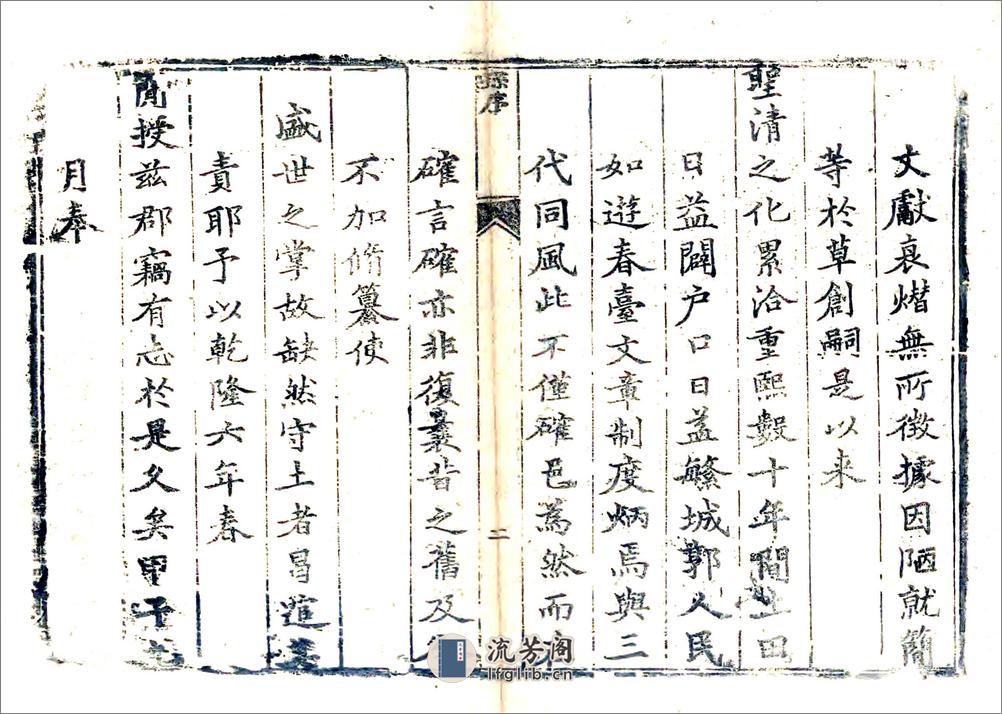 文獻哀熸無所徵據因陋就簡
等於草創嗣是以来
聖清之化累洽重熙數十年間土田
日益闢户口日益繁城郭人民
如遊春臺文章制度炳焉與三
代同風此不僅確邑為然而
孫序
二
確言確亦非復曩昔之舊及
不加脩纂使
盛世之掌故缺然守土者曷逭
責耶予以乾隆六年春
簡授兹郡竊有志於是久矣甲子
月奉
流芳阁
lfglib.cn